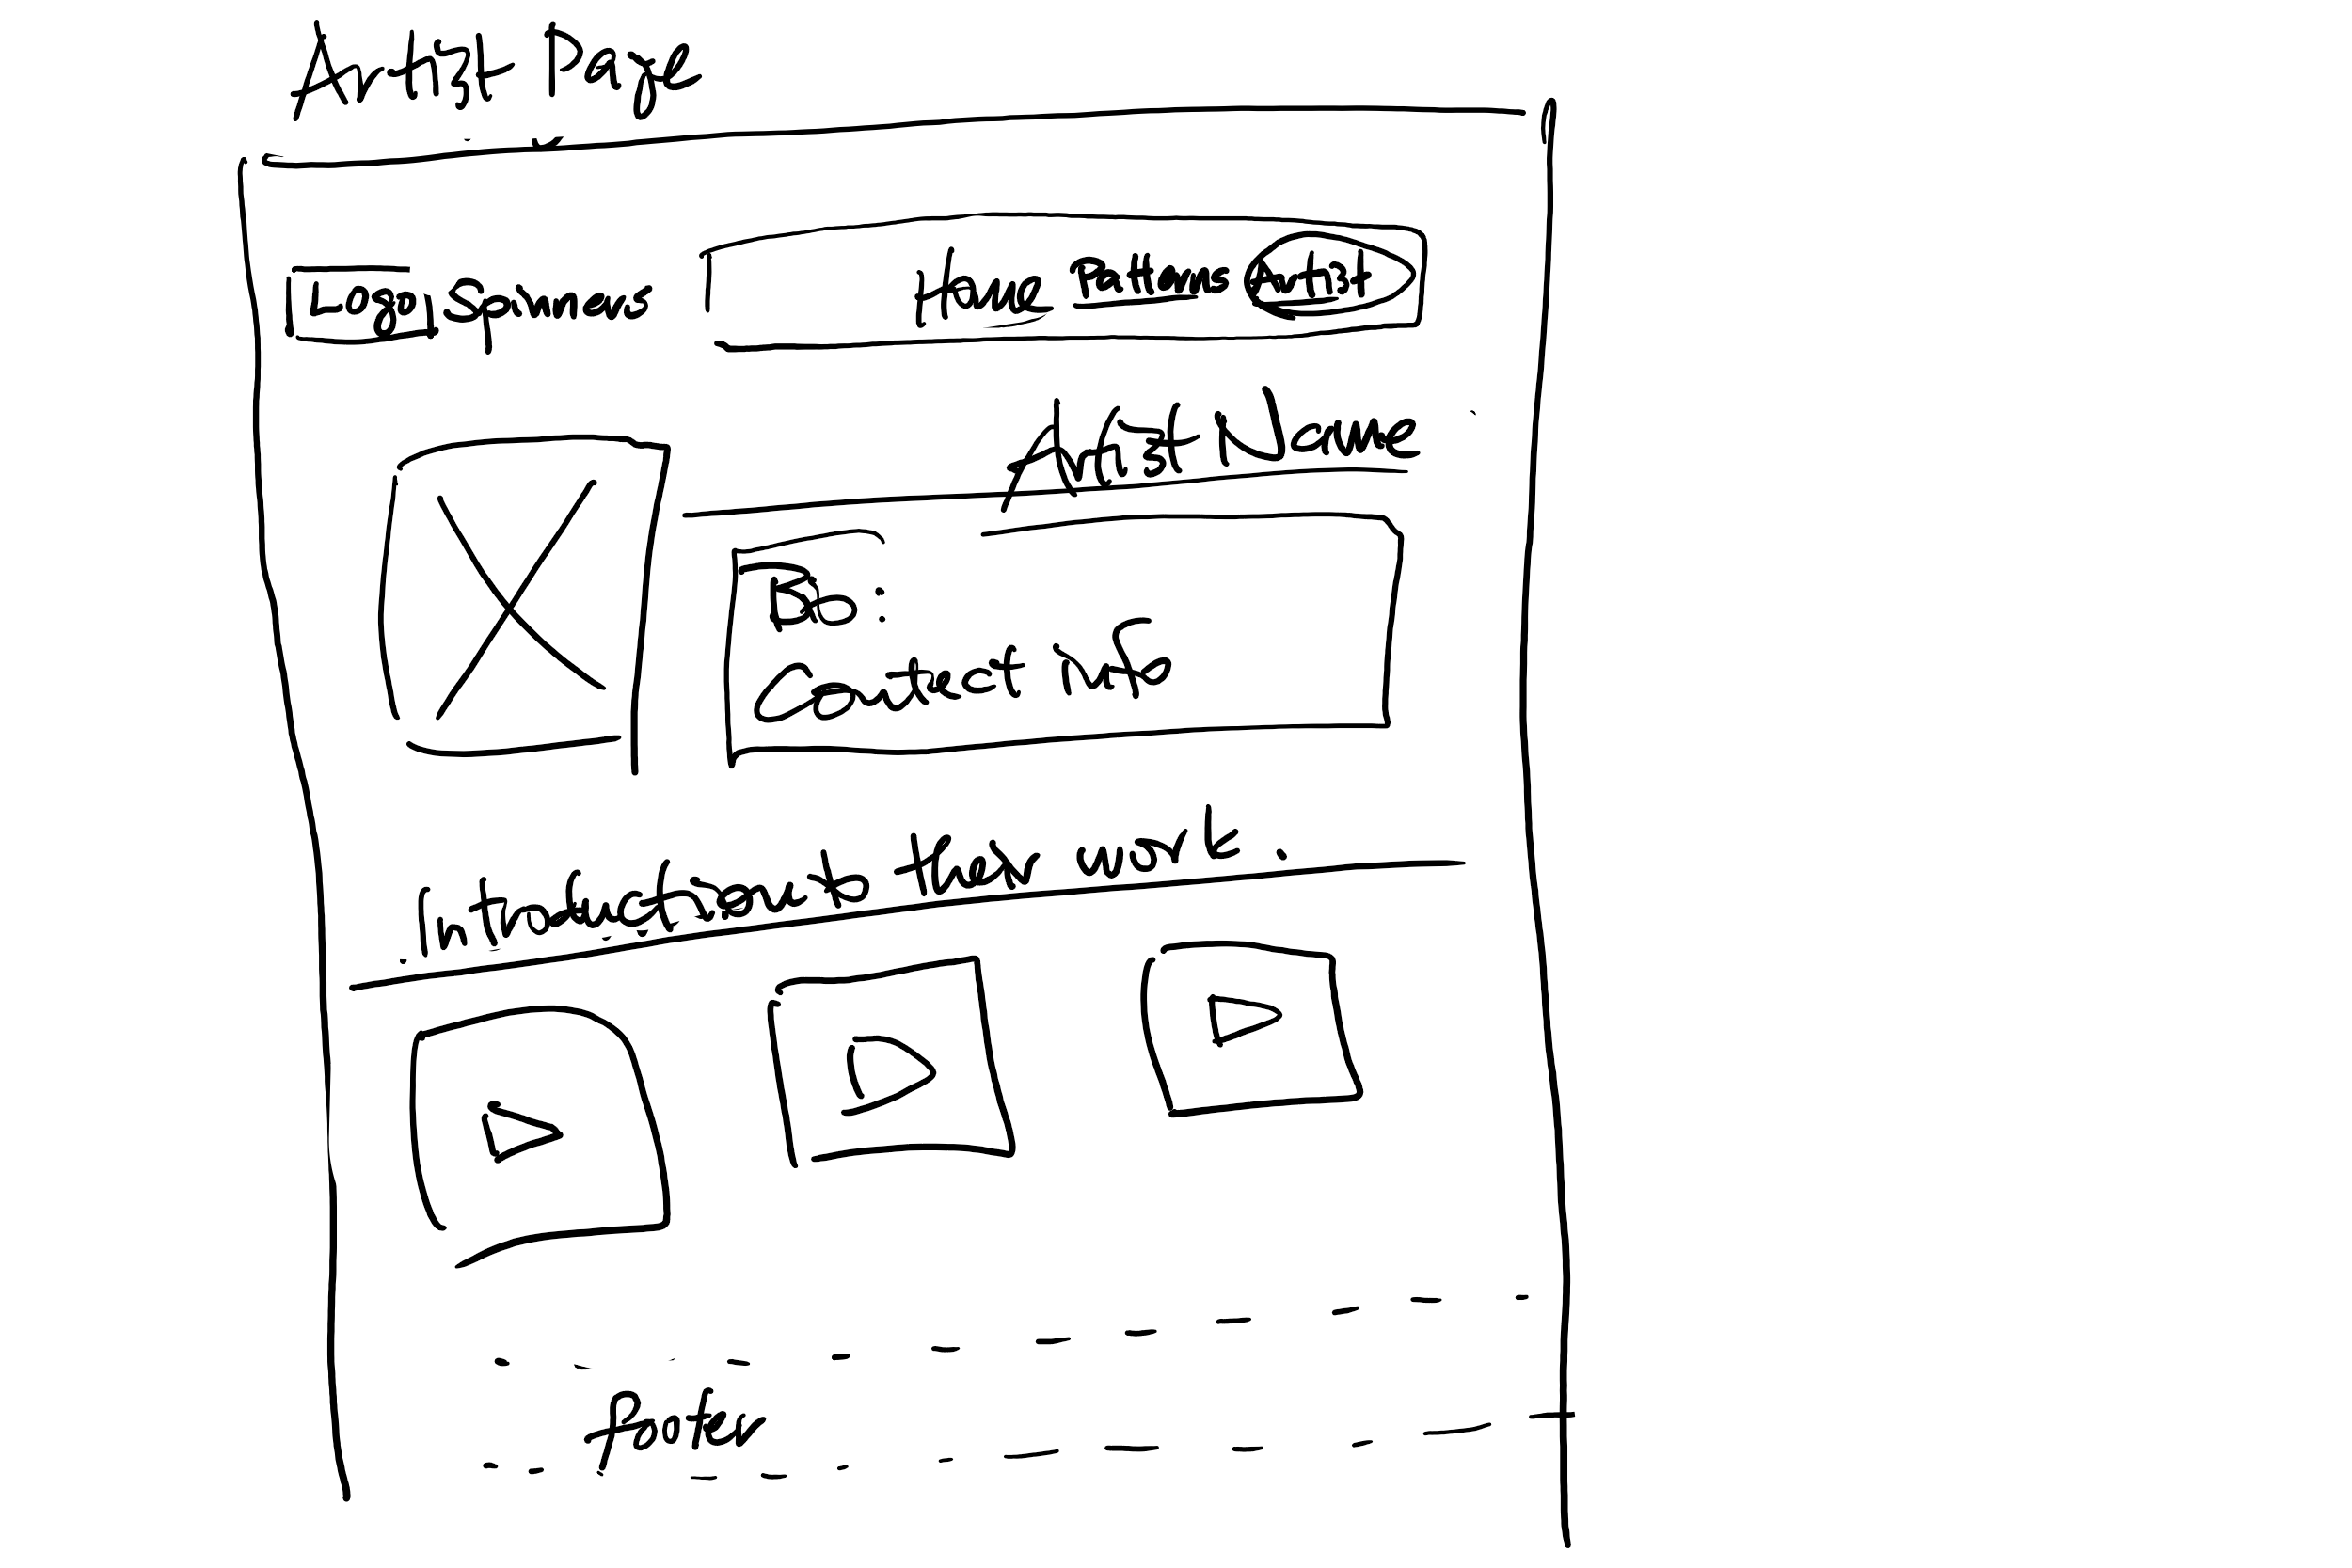 Artist Page
Logo Spinners
Home Patterns Artist
Artist Name
Bio:
Contact info
Introduction to their work.
footer